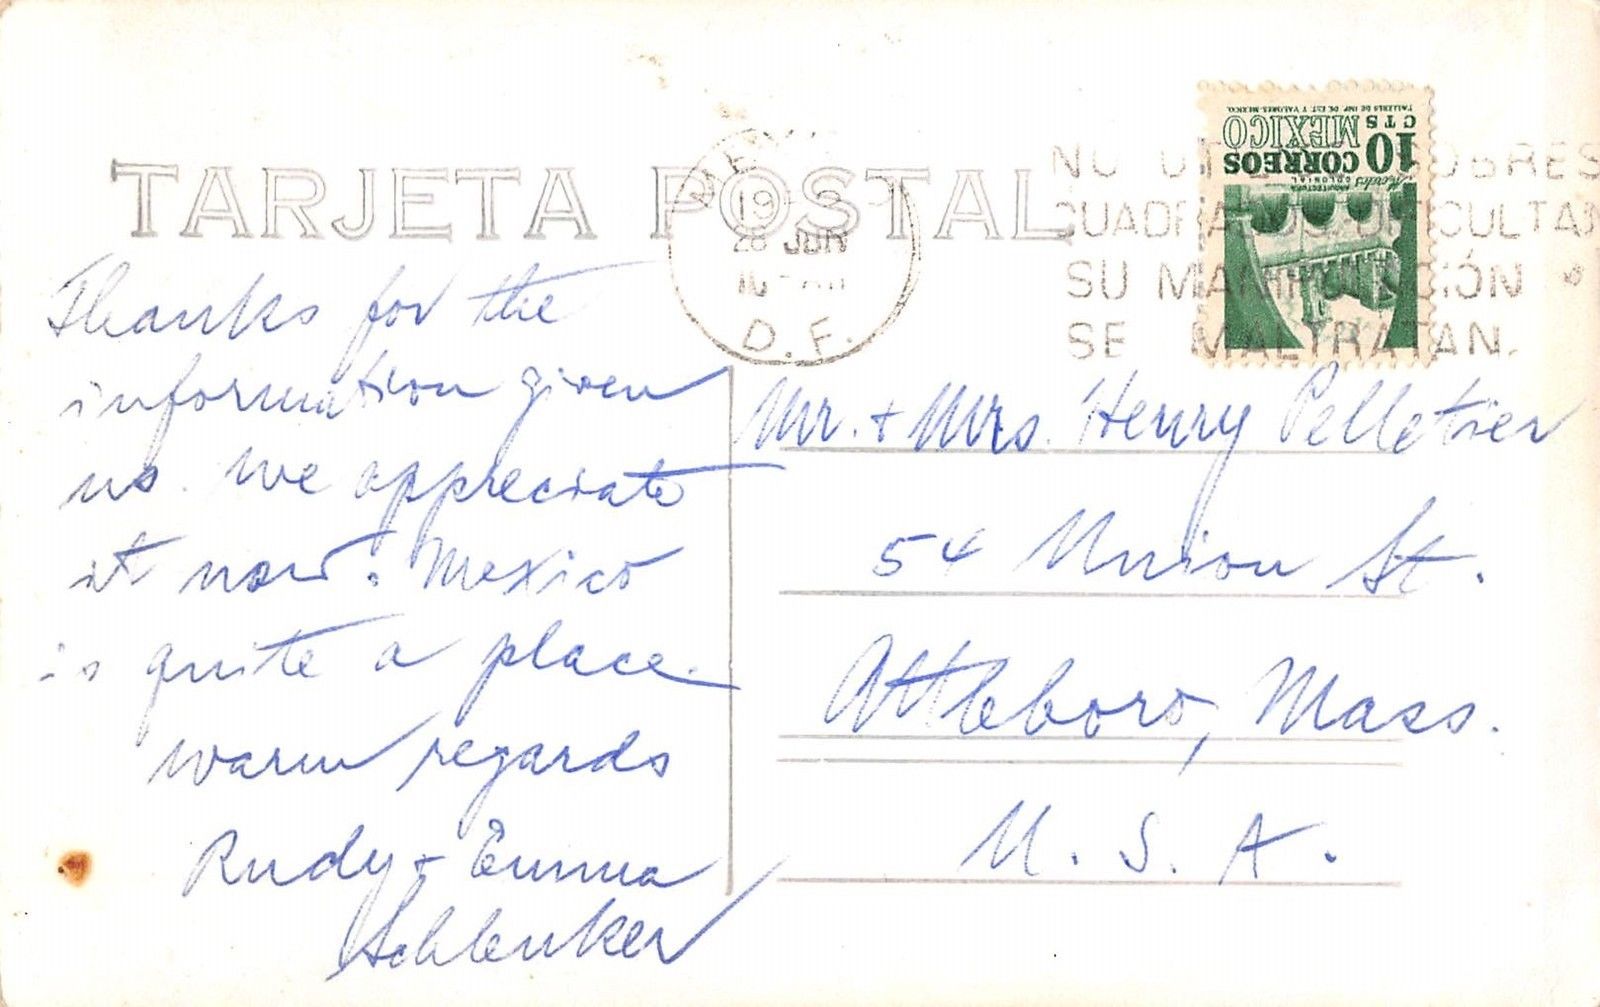 TARJETA POSTAL
19
28 JUN
D. F.
NO UT SOBRES
CUADRADOS DIFICULTAN
SU MANIPULACIÓN
SE MALTRATAN.
TALLERES DE IMP. DE EST. Y VALORES-MEXICO.
10 CTS
CORREOS MEXICO
ARQUITECTURA COLONIAL
Morelos
Thanks for the
information given
us. We appreciate
it now. Mexico
is quite a place.
Warm regards
Rudy + Emma
Schlenker
Mr. + Mrs. Henry Pelletier
54 Union St.
Attleboro, Mass.
U. S. A.